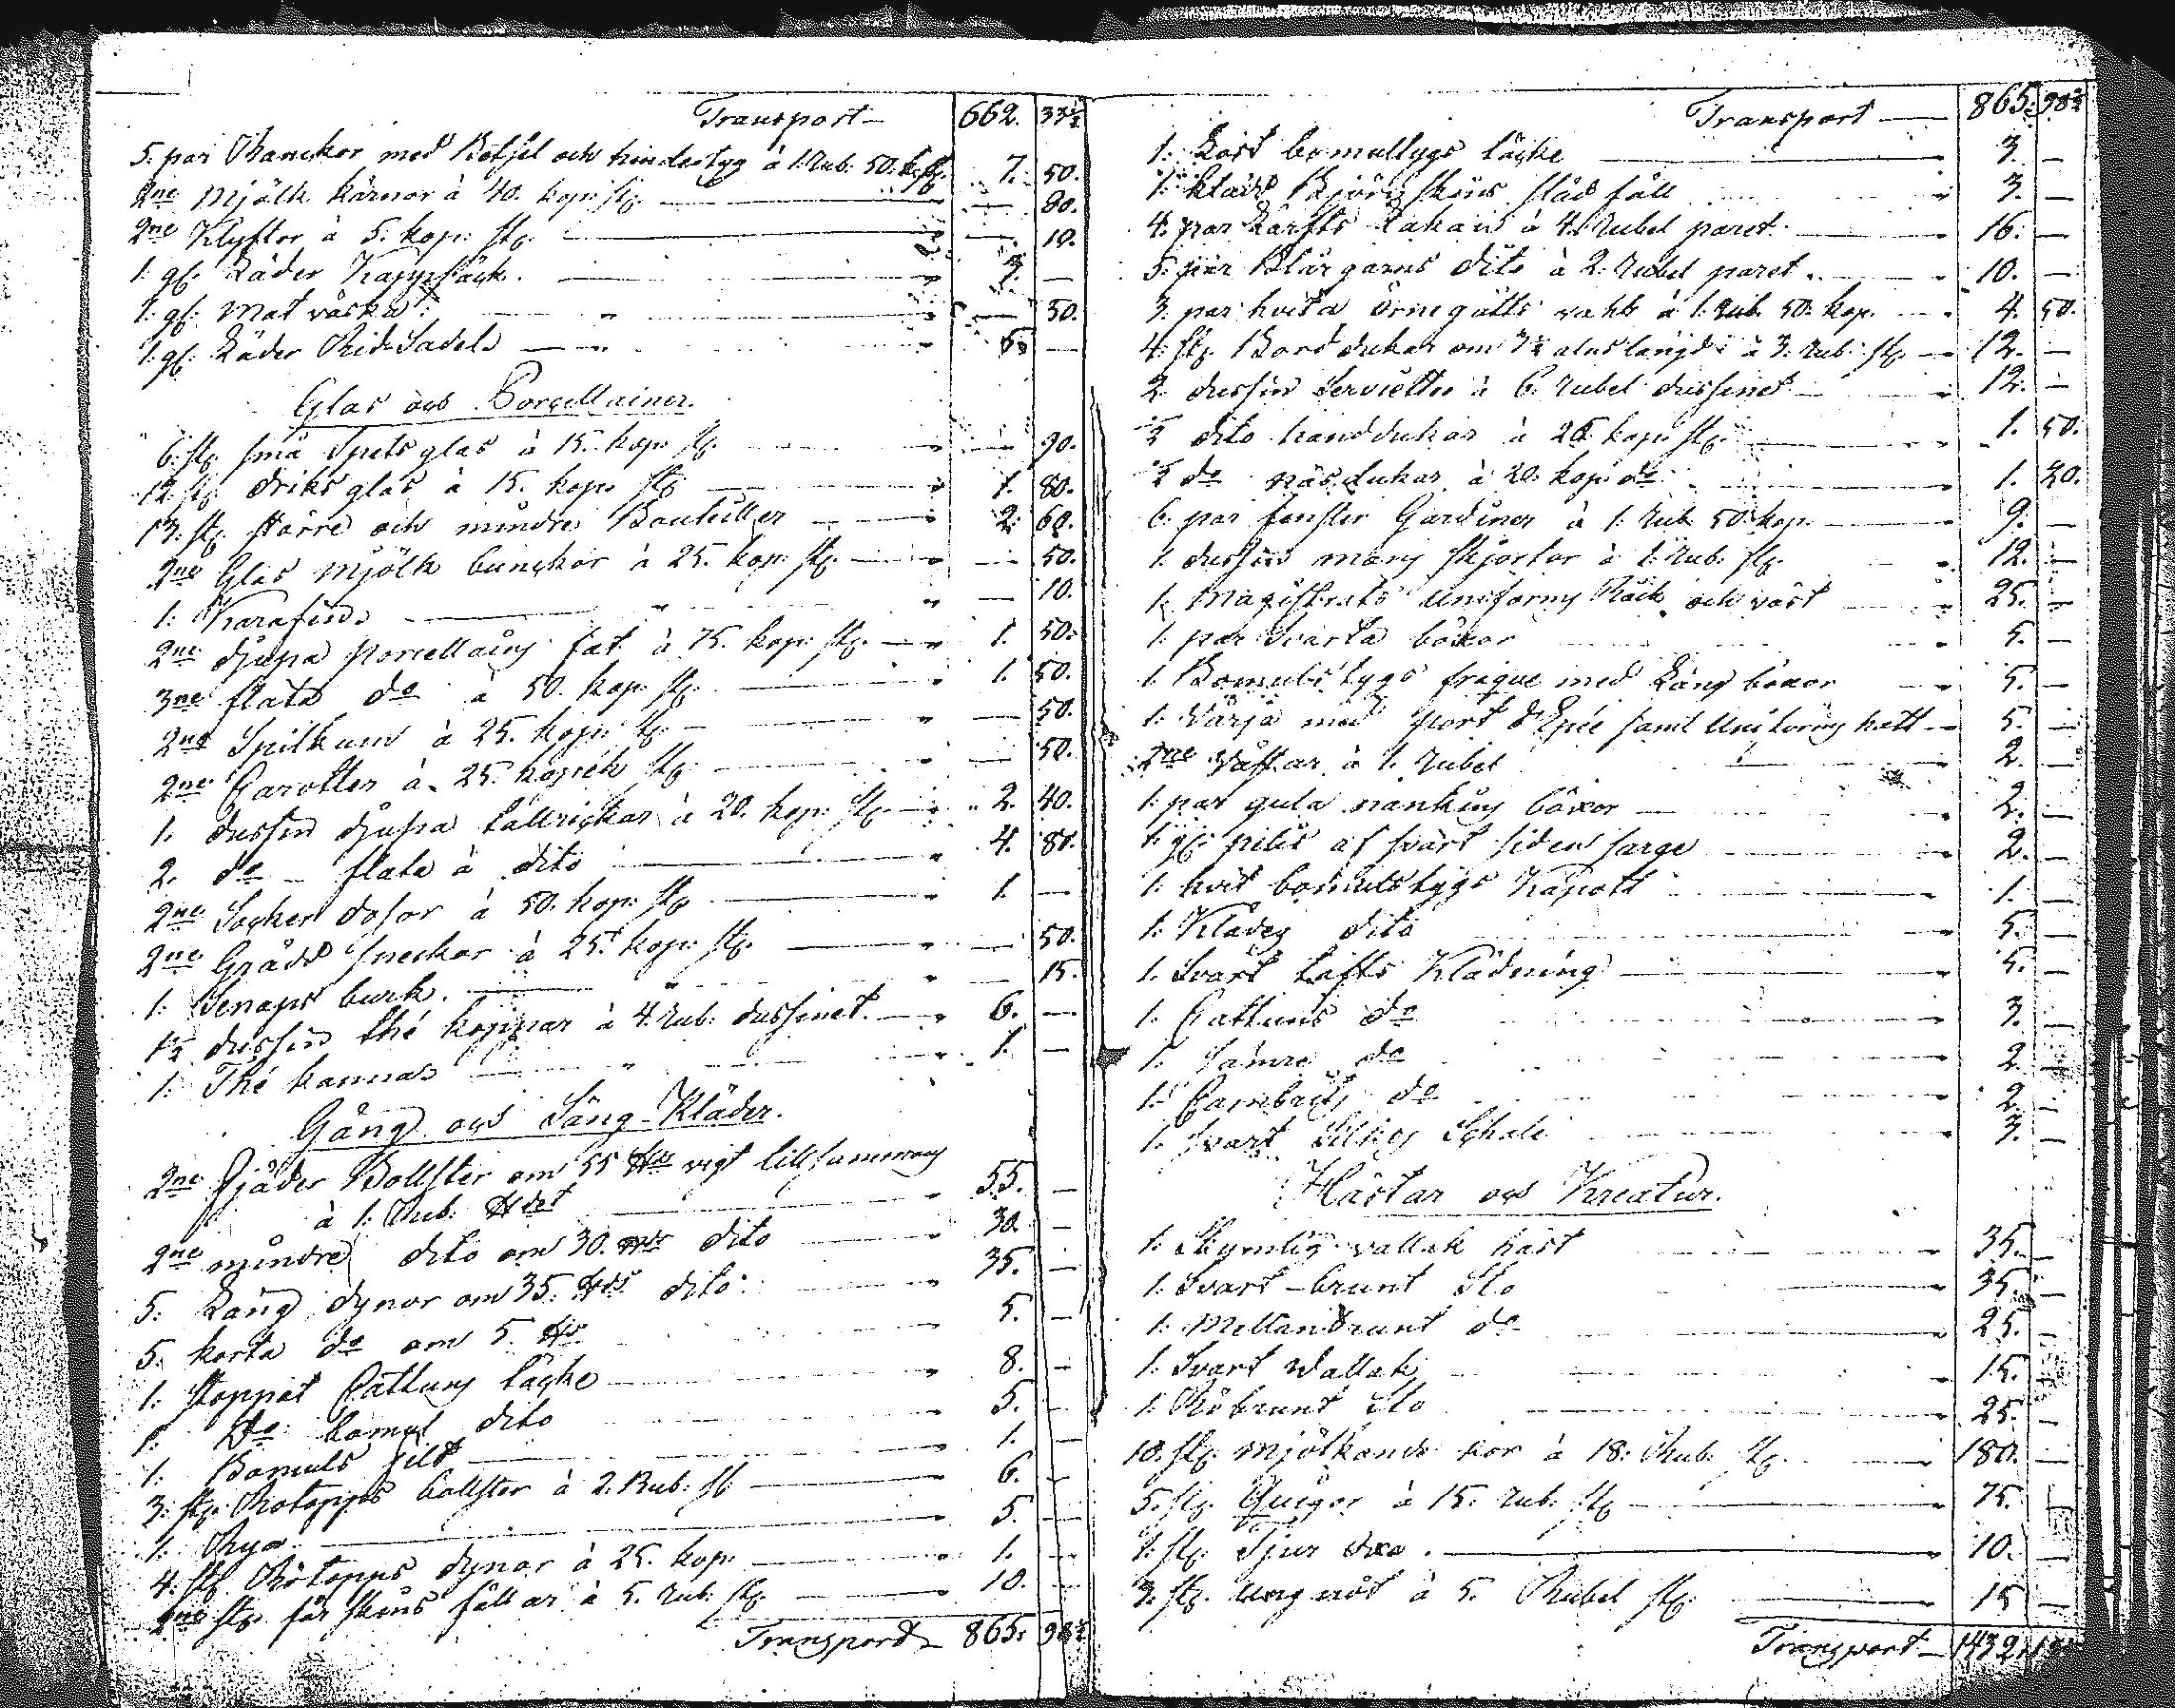 Transport — 662. 33½
5. par Ranckor med Betsel och hindertyg à 1. Rub. 50. k. st. 7. 50.
2ne Mjölk kärnor à 40. kop. st. — 80.
2ne Klyftor à 5. kop. st. — 10.
1. gl. Läder Kappsäck. 3. —
1. gl. Mat väska — 50.
1. gl. Läder Rid-Sadel 5. —
Glas och Porcellainer.
6. st. små Spetsglas à 15. kop. st. — 90.
12 st. driks glas à 15. kop. st. 1. 80.
13. st. större och mindre Bouteiller 2. 60.
2ne Glas Mjölk bunckar à 25. kop. st. — 50.
1. Karafin — 10.
2ne djupa porcellains fat à 75. kop. st. 1. 50.
3ne flata do à 50. kop. st. 1. 50.
2ne Spilkum à 25. kop. st. — 50.
2ne Carotter à 25. kopek st. — 50.
1. dussin djupa tallrickar à 20. kop. st. 2. 40.
2. do flata à dito 4. 80.
2ne Socker dosor à 50. kop. st. 1. —
2ne Grädd sneckor à 25. kop. st. — 50.
1. Senaps burk. — 15.
1½ dussin thé koppar à 4. rub. dussinet. 6. —
1. Thé kanna 1. —
Gång och Säng-Kläder.
2ne Fjäder Bollster om 55 vigt tillsammans
à 1. Rub. 55. —
2ne mindre dito om 30. dito 30. —
5. Lång dynor om 35. dito 35. —
5. korta do om 5. 5. —
1. stoppat Cattuns täcke 8. —
1. do bomul dito 5. —
1. Bomuls filt 1. —
3. st. Rotapps bollster à 2. Rub. st 6. —
1. Rya 5. —
4. st. Rotapps dynor à 25. kop. 1. —
2ne st. får skins fällar à 5. rub. st. 10. —
Transport 865. 98½
Transport — 865. 98½
1. Kort bomullygs täcke 3. —
1. kläds Björnskins släd fäll 3. —
4. par Lärfts Lakan à 4. rubel paret. 16. —
5. par Blårgarns dito à 2. rubel paret. 10. —
3. par hvita örnegåtts vahr à 1. rub. 50. kop. 4. 50.
4. st. Bord dukar om alns längd à 3. rub. st. 12. —
2 dussin Servietter à 6. rubel dussinet 12. —
½ dito handdukar à 25. kop. st. 1. 50.
½ do näsdukar à 20. kop. do 1. 20.
6. par fenster Gardiner à 1. Rub. 50. kop. 9. —
1. dussin mans skjortor à 1. rub. st. 12. —
1. Magistrats Uniforms Råck och väst 25. —
1. par svarta böxor 5. —
1. Bomulstygs fraque med Lång böxor 5. —
1. Värja med port d'Epée samt Uniforms hatt 5. —
2ne Västar à 1. rubel 2. —
1. par gula nankins böxor 2. —
1. gl. pelis af svart siden sarge 2. —
1. hvit bomulstygs Kapott 1. —
1. Klädes dito 5. —
1. Svart tafts Klädning 5. —
1. Cattuns do 3. —
1. sämre do 2. —
1. Cambriks do 2. —
1. svart Silkes Schale 3. —
Hästar och Kreatur.
1. Skymlig vallak häst 35. —
1. Svart-brunt Sto 35. —
1. Mellanbrunt do 25. —
1. Svart Wallak 15. —
1. Röbrunt Sto 25. —
10. st. Mjölkande kor à 18. Rub. st. 180. —
5. st. Quigor à 15. rub. st 75. —
1. st. Tjur 10. —
3. st. ung nöt à 5. Rubel st. 15 —
Transport — 1432.